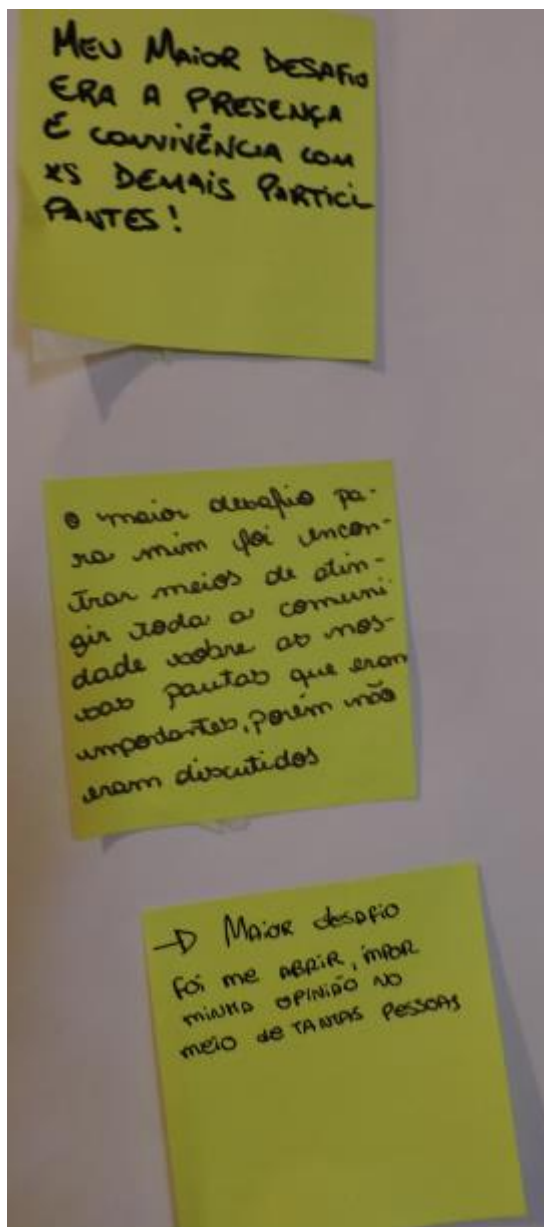 MEU MAIOR DESAFIO
ERA A PRESENÇA
E CONVIVÊNCIA COM
XS DEMAIS PARTICI
PANTES!
O maior desafio pa-
ra mim foi encon-
trar meios de atin-
gir toda a comuni
dade sobre as nos-
sas pautas que eram
importantes, porém não
eram discutidos
→ MAIOR desafio
Foi me ABRIR, IMPOR
MINHA OPINIÃO NO
MEIO de TANTAS PESSOAS